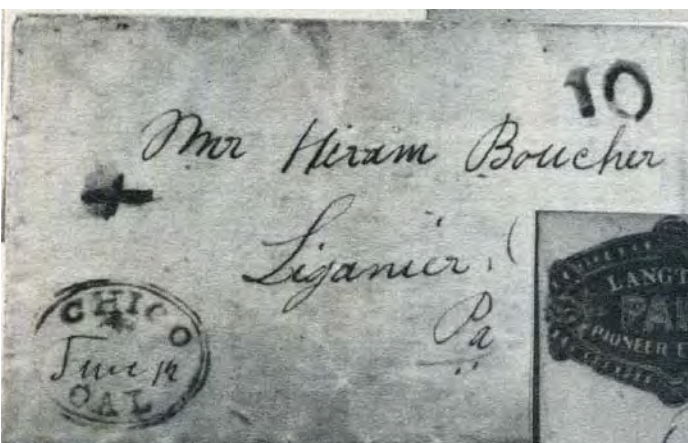 10
Mr Hiram Boucher
Liganier
Pa
CHICO
June
CAL
LANGT
PA
PIONEER E